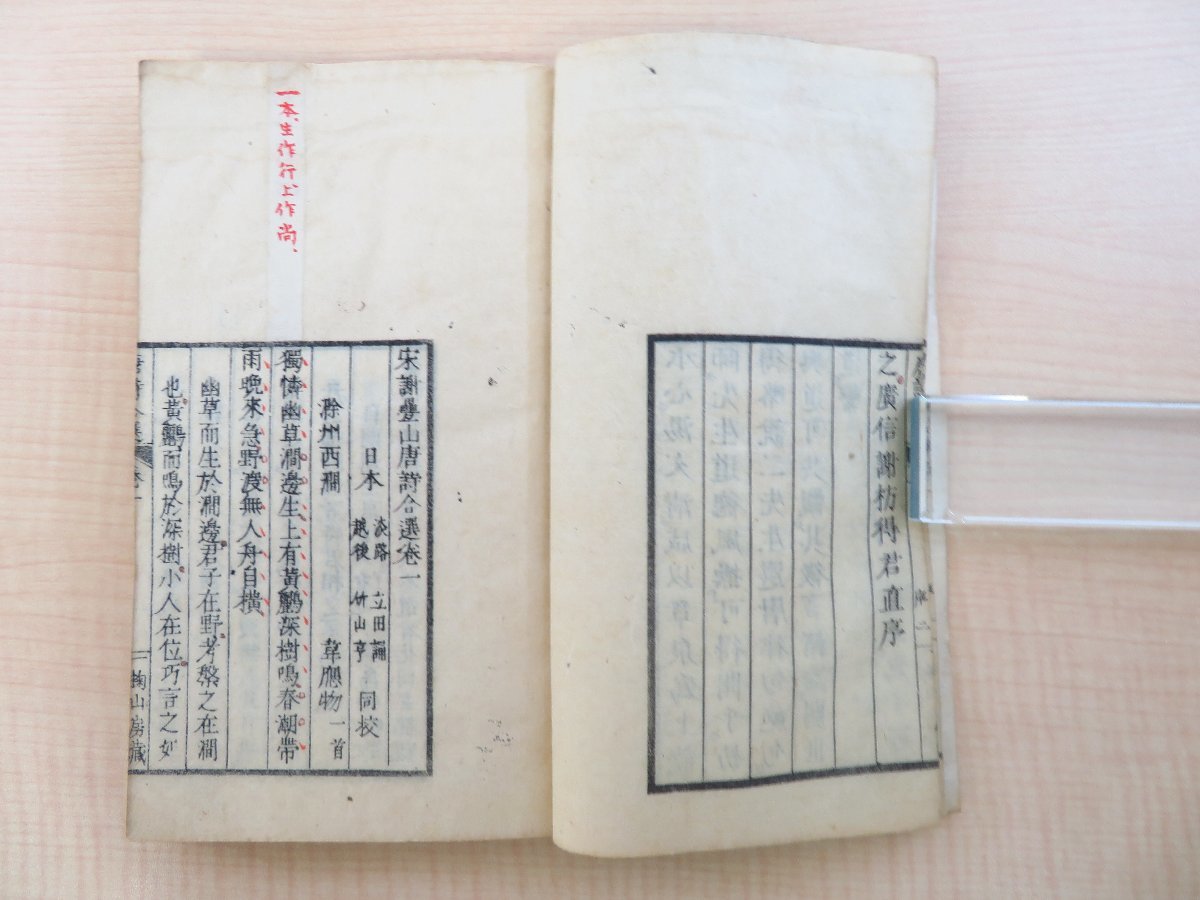 之廣信謝枋得君直序
序二
一本、生作行、上作尚、
宋謝疊山唐詩合選卷一
日本
淡路 立田
越後 竹山亨
同校
滁州西澗 韋應物 一首
獨憐幽草澗邊生上有黃鸝深樹鳴春潮帶
雨晚來急野渡無人舟自橫
幽草而生於澗邊君子在野考槃之在澗
也黃鸝而鳴於深樹小人在位巧言之如
唐詩合選 卷一 一 掬山房藏